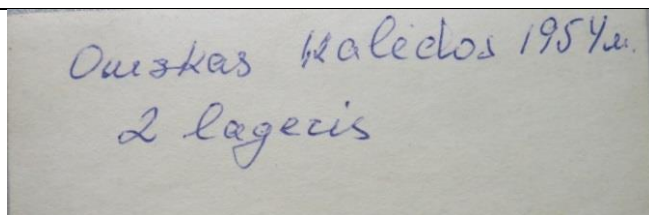 Omskas Kalėdos 1954 m.
2 lageris